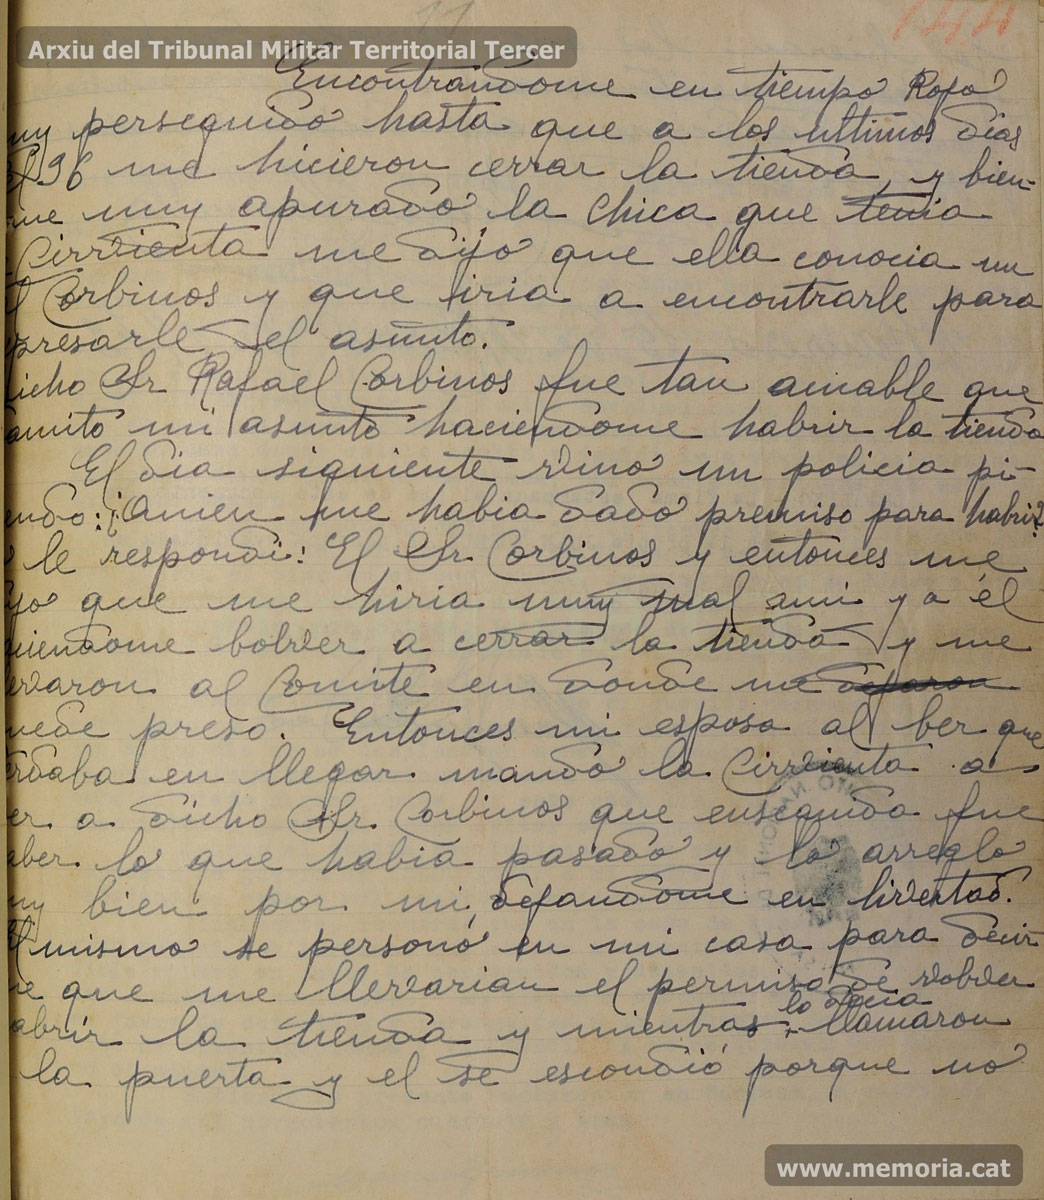 Arxiu del Tribunal Militar Territorial Tercer
144
Encontrandome en tiempo Rojo
muy perseguido hasta que a los ultimos dias
del 36 me hicieron cerrar la tienda, y bien-
muy apurado la chica que tenia
Cirvienta me dijo que ella conocia un
Corbinos y que iria a encontrarle para
presarle el asunto.
dicho Sr Rafael Corbinos fue tan amable que
mi asunto haciendome habrir la tienda
El dia siguiente vino un policia pi-
endo: ¡Quien me habia dado premiso para habrir?
le respondi: El Sr Corbinos y entonces me
que me hiria muy mal ami y a él
bolver a cerrar la tienda y me
llevaron al Comite en donde me dejaron
quede preso. Entonces mi esposa al ber que
tardaba en llegar mando la Cirvienta a
ber a dicho Sr. Corbinos que enseguida fue
aber lo que habia pasado y lo arreglo
muy bien por mi, dejandome en livertad.
El mismo se personó en mi casa para decir-
me que me llevarian el permiso de volver
abrir la tienda y mientras lo decia llamaron
la puerta y el se escondió porque no
www.memoria.cat